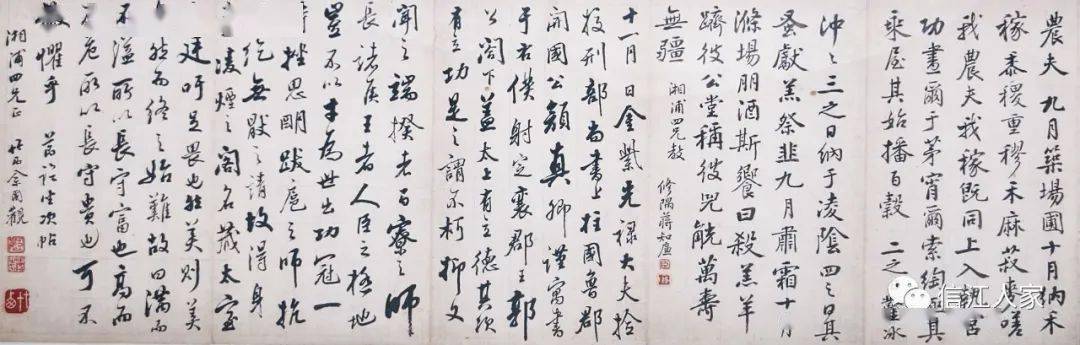 農夫 九月築場圃十月納禾
稼黍稷重穋禾麻菽麥嗟
我農夫我稼既同上入執宮
功晝爾于茅宵爾索綯其
乘屋其始播百穀 二之鑿冰
沖〻三之日納于凌陰四之日其
蚤獻羔祭韭九月肅霜十月
滌場朋酒斯饗曰殺羔羊
躋彼公堂稱彼兕觥萬壽
無疆 湘浦四兄教 修隅蔣知廉
十一月日金紫光祿大夫檢
校刑部尚書上柱國魯郡
開國公顏真卿謹寓書
于右僕射定襄郡王郭
公閣下蓋太上有立德其次
有立功是之謂不朽抑又
聞之端揆者百寮之師
長諸侯王者人臣之極地
豈不以才為世出功冠一
時挫思明跋扈之師抗
紇無厭之請故得身
凌煙之閣名藏太室
廷吁足畏也然美則美
然而終之始難故曰滿而
不溢所以長守富也高而
不危所以長守貴也可不
懼乎 坐次帖
湘浦四先正 余國觀
信江人家